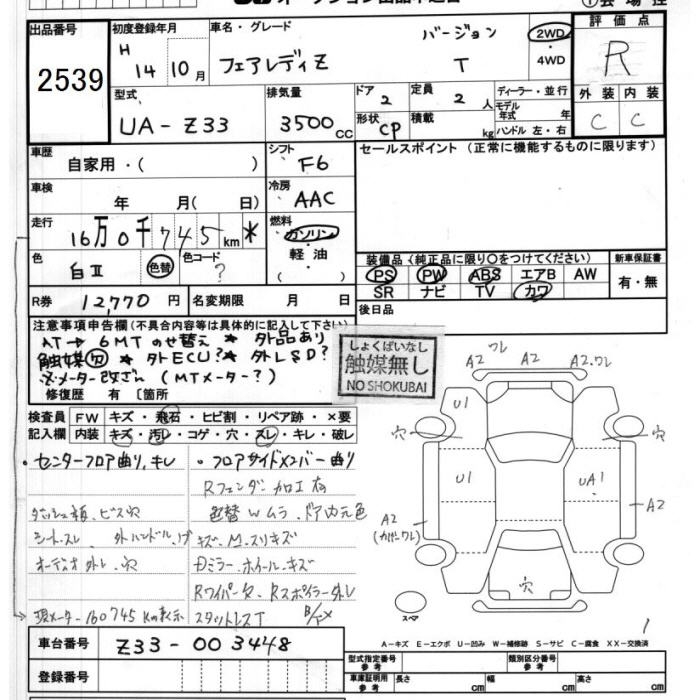 出品番号
2539
初度登録年月
H
14 10 月
車名・グレード
フェアレディZ
バージョン
T
2WD
・
4WD
評価点
R
型式
UA-Z33
排気量
3500 cc
ドア 2
定員 2 人
形状 CP
積載 kg
ディーラー・並行
モデル
年式 年
ハンドル 左・右
外装 内装
C C
車歴
自家用・( )
シフト
F6
セールスポイント (正常に機能するものに限ります)
車検
年 月( 日)
冷房
AAC
走行
16万0千745km *
燃料
ガソリン
軽油
( )
色
白II
色替
色コード
?
装備品 (純正品に限り○をつけてください)
PS PW ABS エアB AW
SR ナビ TV カワ
新車保証書
有・無
R券 12,770 円
名変期限 月 日
後日品
注意事項申告欄 (不具合内容等は具体的に記入して下さい)
AT→6MTのせ替え * 外品あり
触媒欠 * 外ECU? * 外LSD?
メーター改ざん (MTメーター?)
修復歴 有 〔箇所
しょくばいなし
触媒無し
NO SHOKUBAI
検査員
記入欄
FW キズ・飛石・ヒビ割・リペア跡・×要
内装 キズ・汚レ・コゲ・穴・スレ・キレ・破レ
・センターフロア曲り、キレ
・フロアサイドメンバー曲り
Rフェンダー加工有
ダッシュ補、ビス穴
色替Wムラ、ドア内元色
シート、スレ
外ハンドル、
キズ、M、スリキズ
オーディオ外レ、穴
Dミラー、ホイール、キズ
Rワイパー欠、Rスポイラー外レ
現メーター160745km表示
スタッドレスT
A2 ワレ
A2
A2、ワレ
U1
穴
穴
U1
UA1
A2
(カバーワレ)
A2
穴
スペア
1
A-キズ E-エクボ U-凹み W-補修跡 S-サビ C-腐食 XX-交換済
車台番号
Z33-003448
登録番号
型式指定番号
参考
類別区分番号
参考
車庫証明用
参考
長さ cm
幅 cm
高さ cm